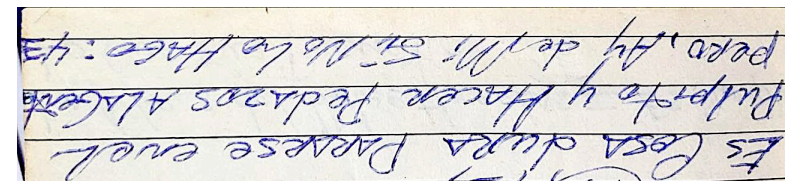 Es Cosa dura PARARSE en el
Pulpito y Hacer Pedazos A LA Gente
pero, Ay de Mi Si No Lo HAGO: